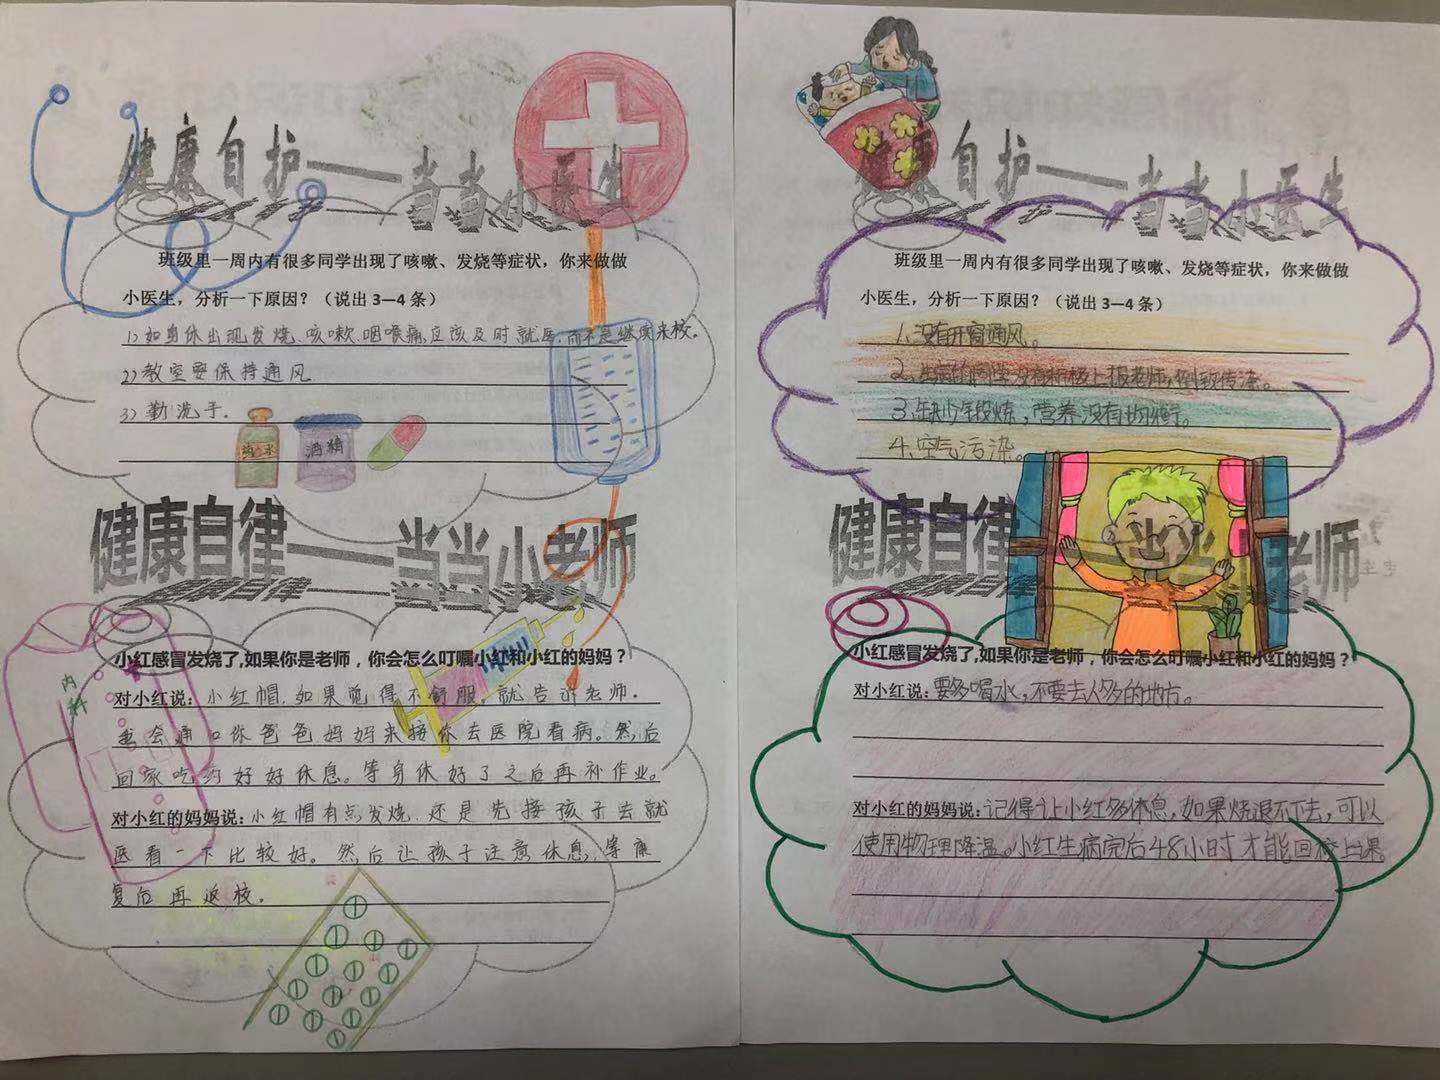 健康自护——当当小医生
班级里一周内有很多同学出现了咳嗽、发烧等症状，你来做做
小医生，分析一下原因？（说出3—4条）
1)如身体出现发烧、咳嗽、咽喉痛,应该及时就医.而不是继续来校.
2)教室要保持通风
3)勤洗手.
酒精
健康自律——当当小老师
小红感冒发烧了,如果你是老师，你会怎么叮嘱小红和小红的妈妈？
内科
对小红说：小红帽.如果觉得不舒服.就告诉老师.
会通口你爸爸妈妈来接你去医院看病。然后
回家吃药好好休息。等身体好了之后再补作业。
对小红的妈妈说：小红帽有点发烧.还是先接孩子去就
医看一下比较好。然后让孩子注意休息.等康
复后再返校.
健康自护——当当小医生
班级里一周内有很多同学出现了咳嗽、发烧等症状，你来做做
小医生，分析一下原因？（说出3—4条）
1、没有开窗通风。
2、生病的同学没有积极上报老师,倒致传染。
3、缺少锻炼，营养没有均衡。
4、空气污染。
健康自律——当当小老师
小红感冒发烧了,如果你是老师，你会怎么叮嘱小红和小红的妈妈？
对小红说：要多喝水,不要去人多的地方。
对小红的妈妈说：记得让小红多休息,如果烧退不下去,可以
使用物理降温。小红生病完后48小时才能回校上课